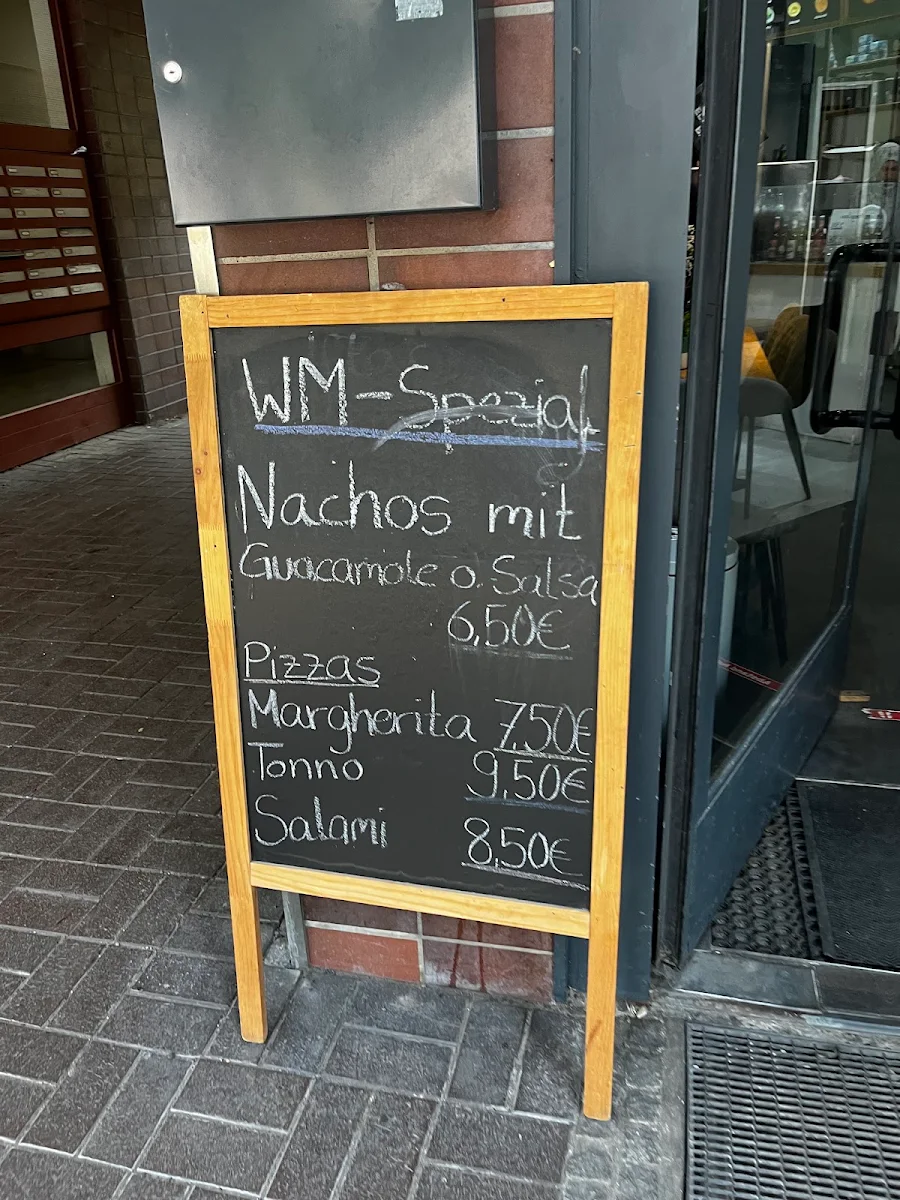 WM-Spezial
Nachos mit
Guacamole o. Salsa
6,50€
Pizzas
Margherita 7,50€
Tonno 9,50€
Salami 8,50€